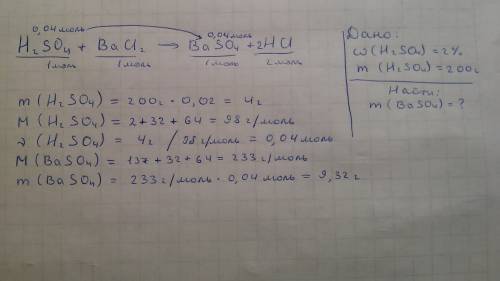 0,04 моль 0,04 моль
H₂SO₄ + BaCl₂ → BaSO₄ + 2HCl
1 моль 1 моль 1 моль 2 моль
m (H₂SO₄) = 200г · 0,02 = 4г
M (H₂SO₄) = 2 + 32 + 64 = 98 г/моль
ν (H₂SO₄) = 4г / 98 г/моль = 0,04 моль
M (BaSO₄) = 137 + 32 + 64 = 233 г/моль
m (BaSO₄) = 233 г/моль · 0,04 моль = 9,32 г
Дано:
ω (H₂SO₄) = 2%
m (H₂SO₄) = 200г
Найти:
m (BaSO₄) = ?